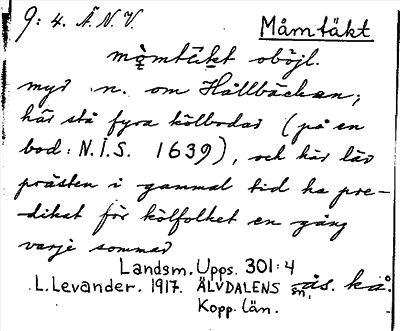 9: 4. Ä. N. V. Måmtäkt
måmtäkt oböjl.
myr n. om Hållbäcken;
här stå fyra kölbodar (på en
bod: N.I.S. 1639), och här lär
prästen i gammal tid ha pre-
dikat för kölfolket en gång
varje sommar
Landsm. Upps. 301:4
L. Levander. 1917. ÄLVDALENS sn, ås.
Kopp. län.